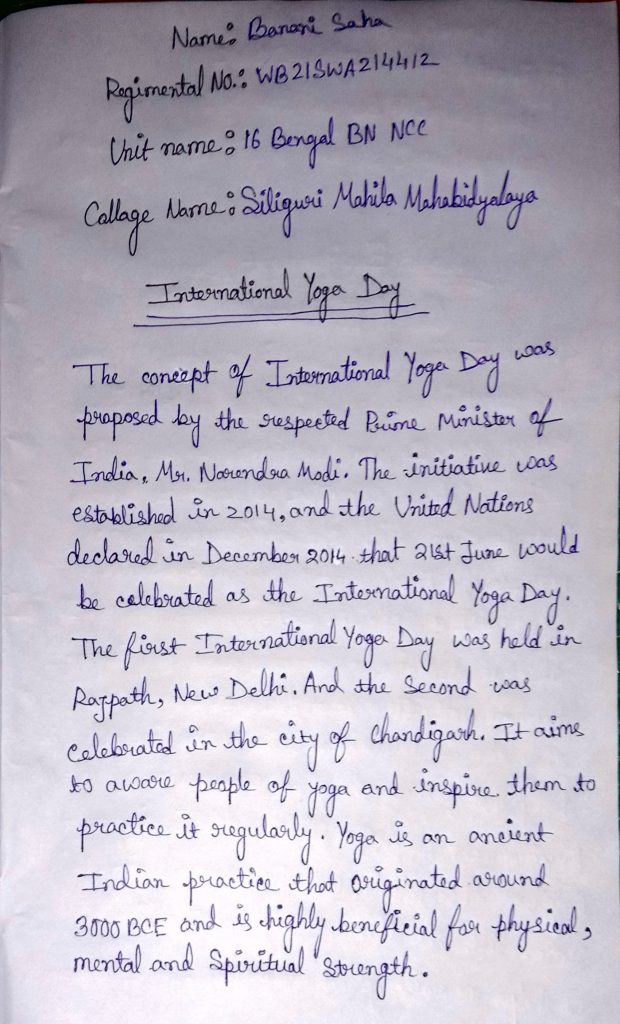 Name: Banani Saha
Regimental No.: WB21SWA214412
Unit name: 16 Bengal BN NCC
Collage Name: Siliguri Mahila Mahabidyalaya
International Yoga Day
The concept of International Yoga Day was
proposed by the respected Prime Minister of
India, Mr. Narendra Modi. The initiative was
established in 2014, and the United Nations
declared in December 2014 that 21st June would
be celebrated as the International Yoga Day.
The first International Yoga Day was held in
Rajpath, New Delhi. And the Second was
celebrated in the city of Chandigarh. It aims
to aware people of yoga and inspire them to
practice it regularly. Yoga is an ancient
Indian practice that originated around
3000 BCE and is highly beneficial for physical,
mental and Spiritual Strength.